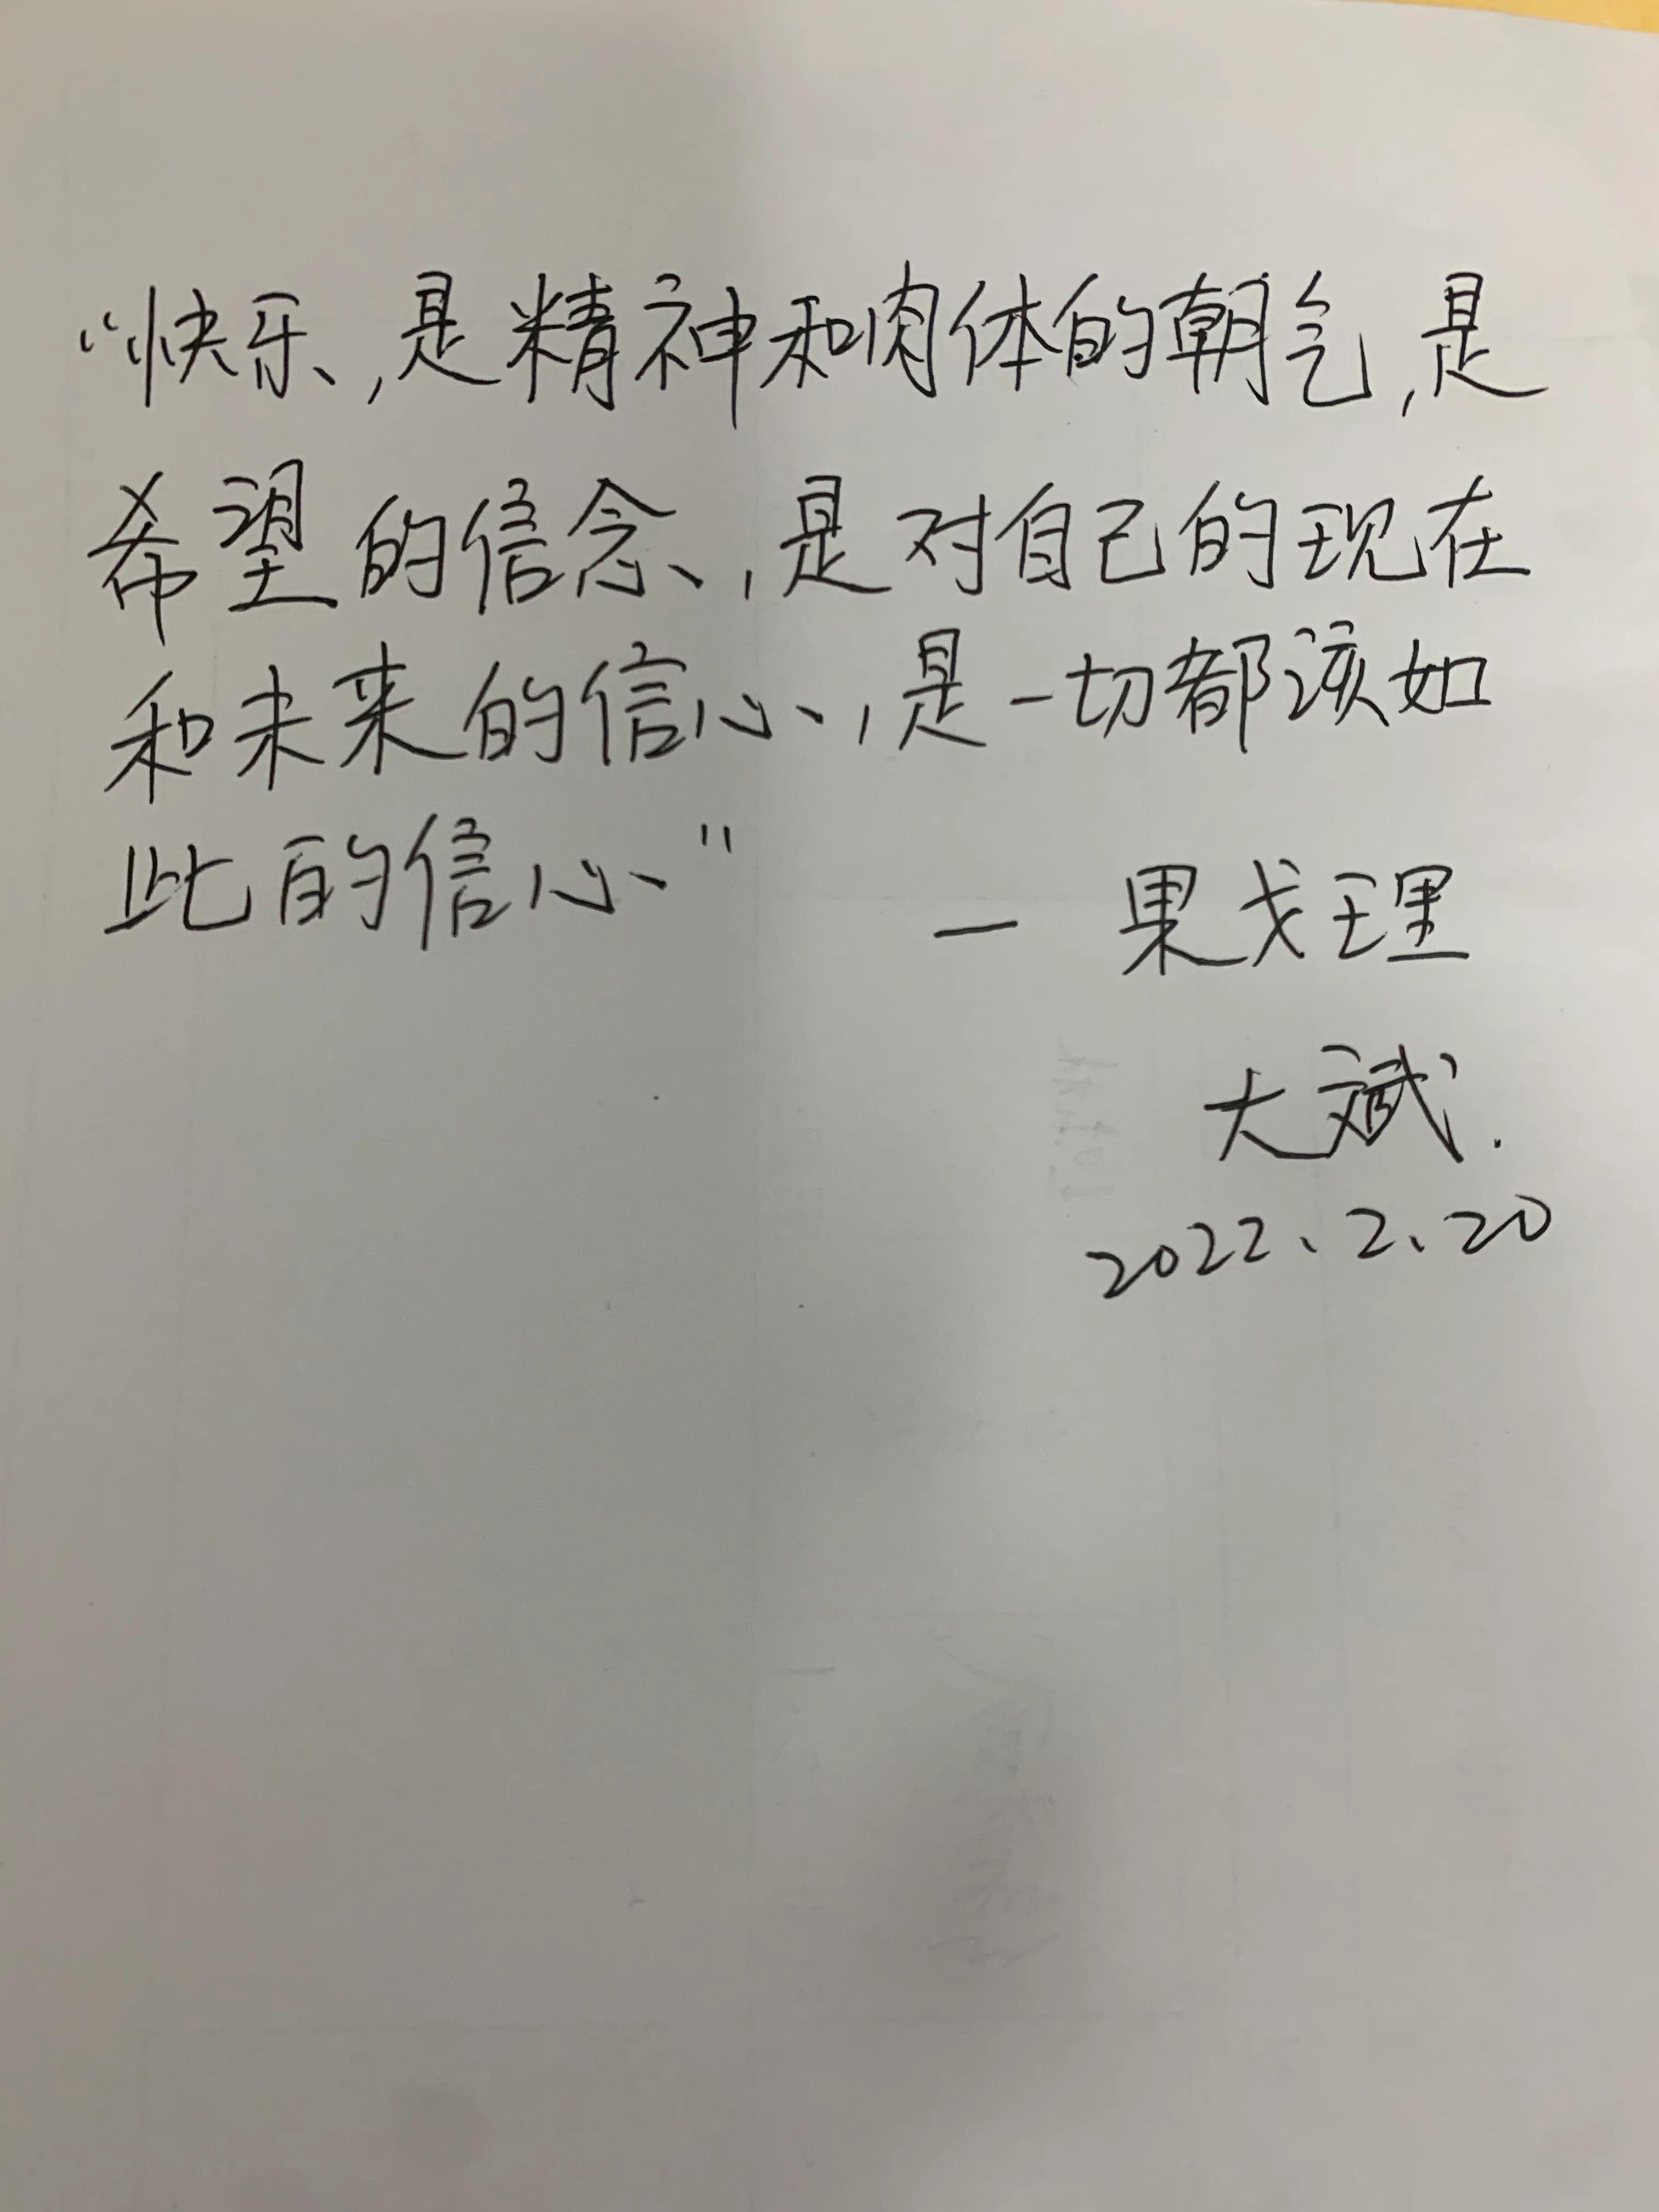 “快乐，是精神和肉体的朝气，是
希望的信念，是对自己的现在
和未来的信心，是一切都该如
此的信心”
— 果戈理
大斌.
2022、2、20